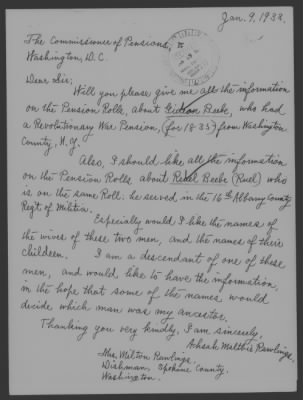 Jan. 9, 1933.
The Commissioner of Pensions,
Washington, D.C.
Dear Sir:
Will you please give me all the information
on the Pension Rolls, about Gideon Beebe, who had
a Revolutionary War Pension, (for 1835) from Washington
County, N.Y.
Also, I should like all the information
on the Pension Rolls about Reuel Beebe (Ruel) who
is on the same Roll. he served in the 16th Albany County
Reg't. of Militia.
Especially would I like the names of
the wives of these two men, and the names of their
children. I am a descendant of one of these
men, and would like to have the information,
in the hope that some of the names would
decide which man was my ancestor.
Thanking you very kindly, I am sincerely,
Achsah Matthis Rawlings.
Mrs. Milton Rawlings.
Dishman, Spokane County.
Washington.